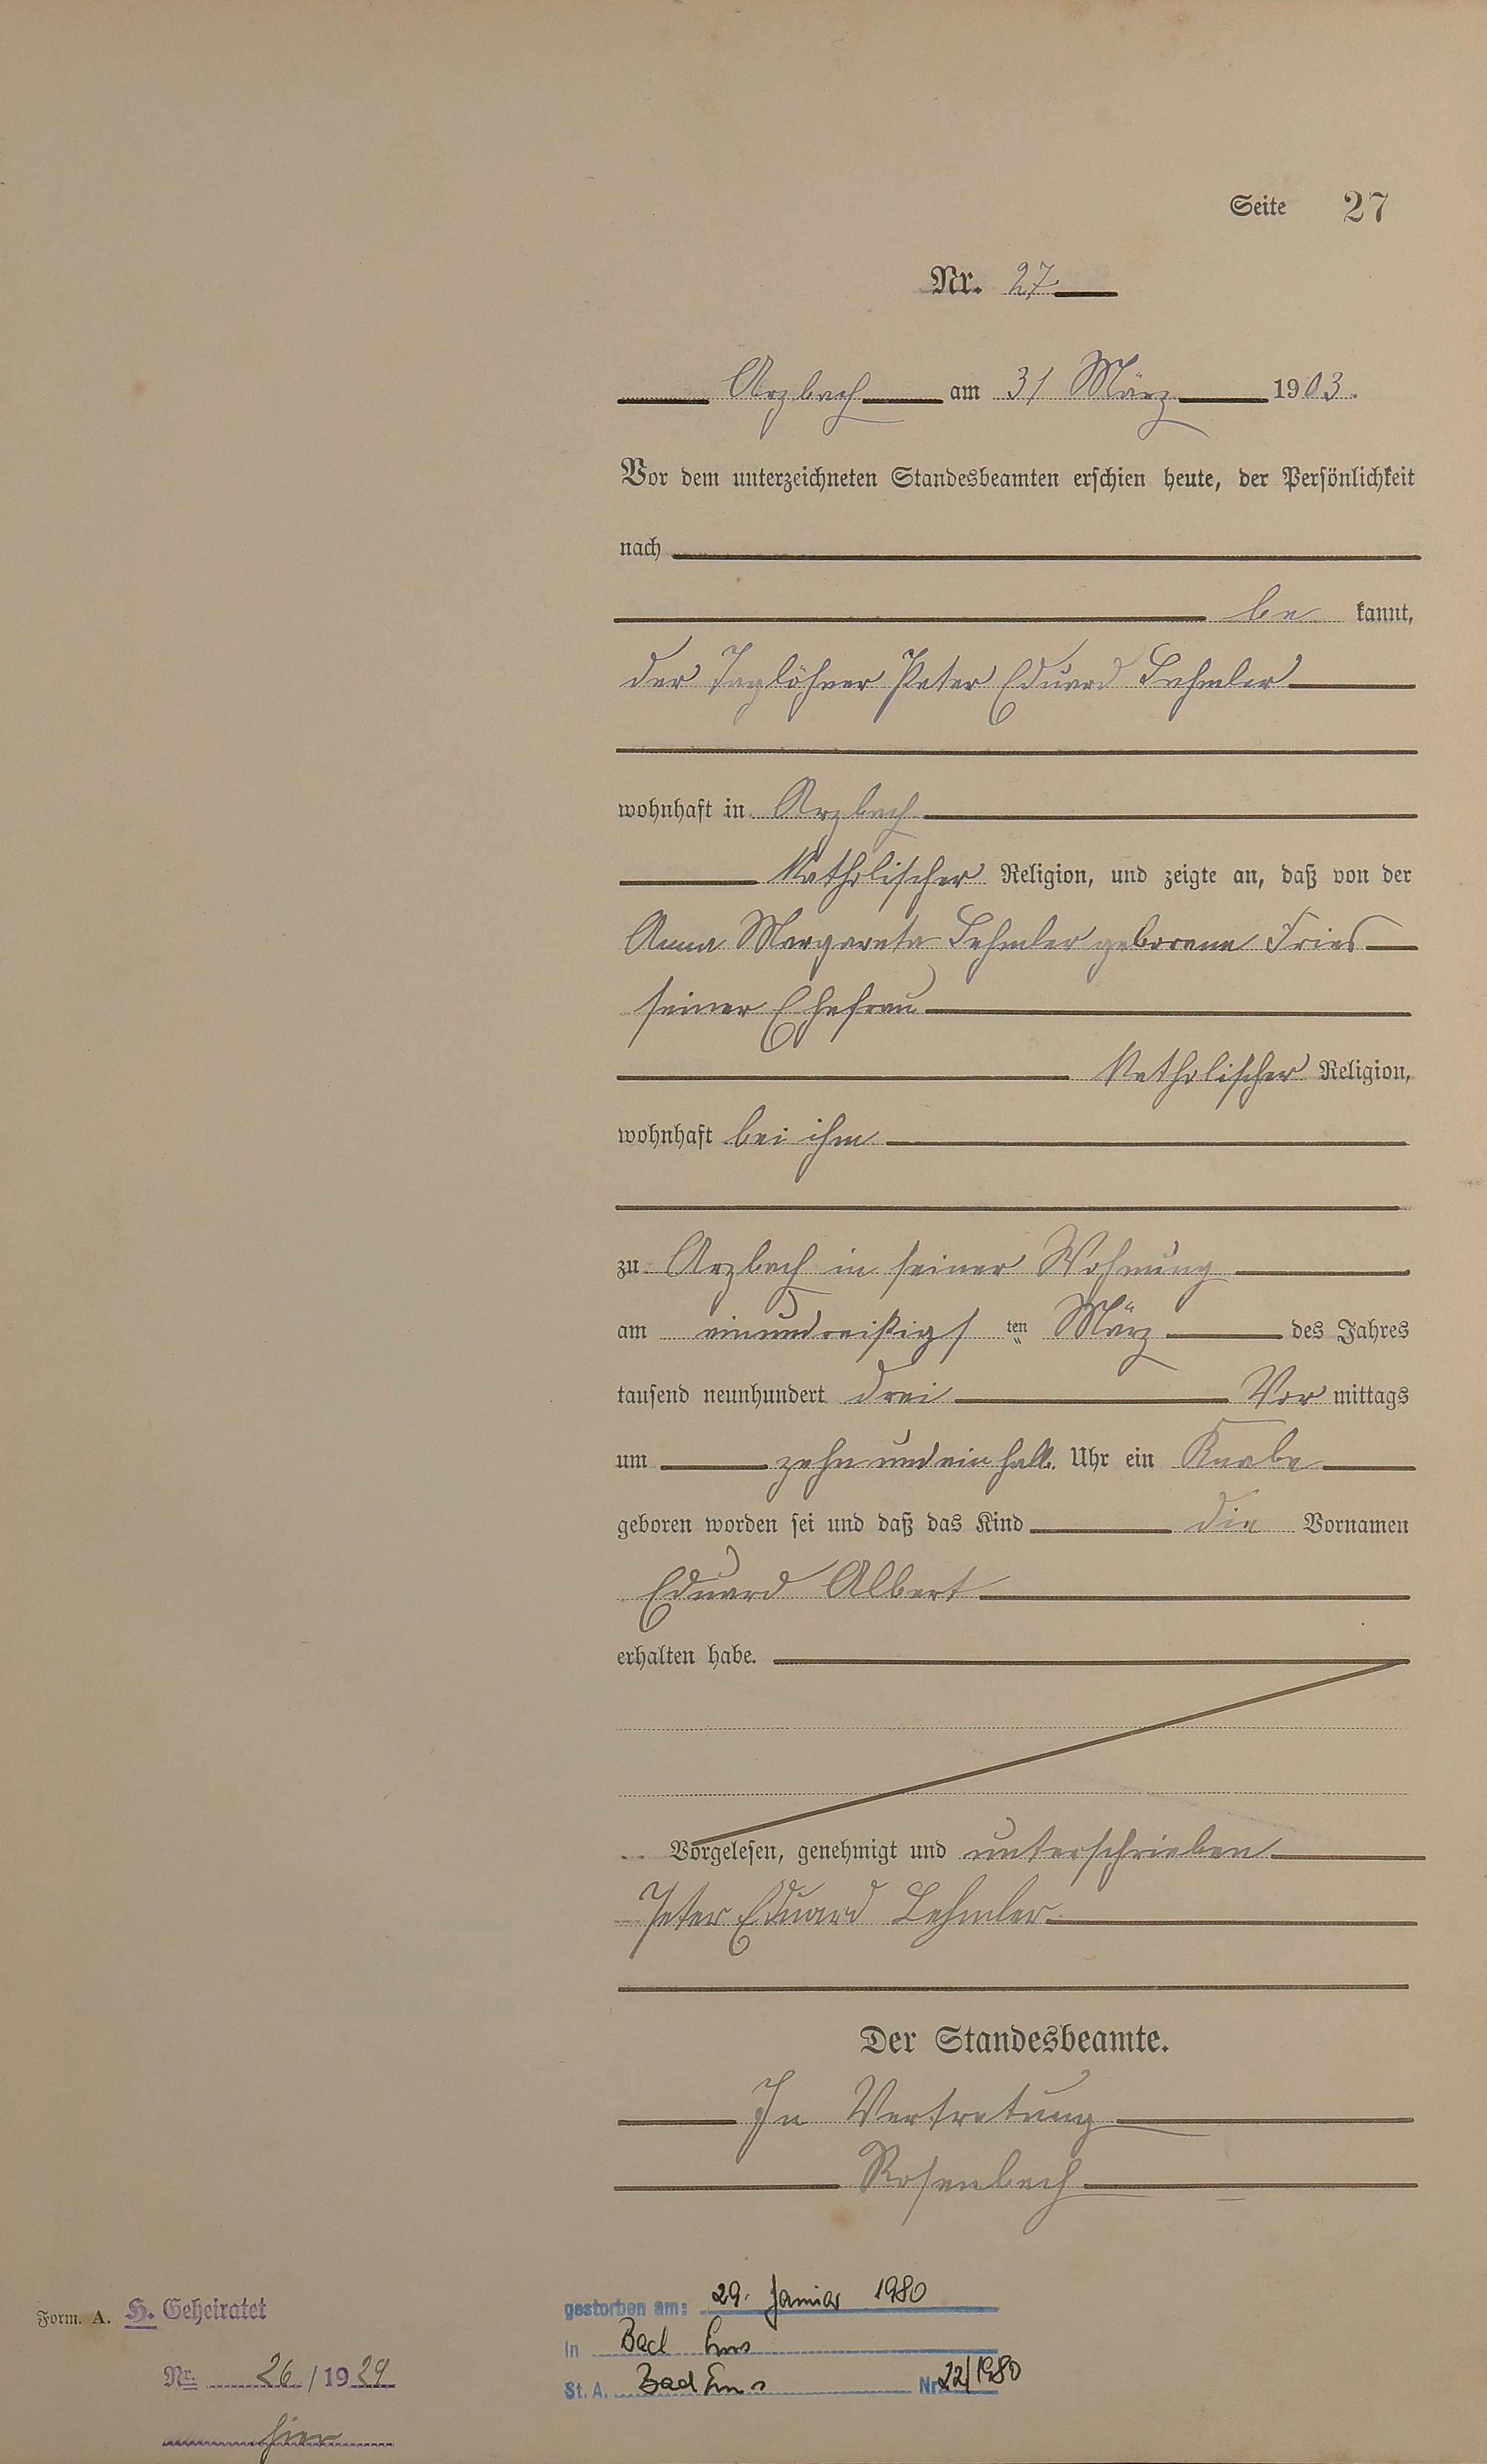 Seite 27
Nr. 27
Arzbach am 31 März 1903.
Vor dem unterzeichneten Standesbeamten erschien heute, der Persönlichkeit
nach
be kannt,
der Taglöhner Peter Eduard Lehmler
wohnhaft in Arzbach
katholischer Religion, und zeigte an, daß von der
Anna Margareta Lehmler geborene Fries
seiner Ehefrau
katholischer Religion,
wohnhaft bei ihm
zu Arzbach in seiner Wohnung
am einundreißigs ten März des Jahres
tausend neunhundert drei Vor mittags
um zehn und ein halb Uhr ein Knabe
geboren worden sei und daß das Kind die Vornamen
Eduard Albert
erhalten habe.
Vorgelesen, genehmigt und unterschrieben
Peter Eduard Lehmler
Der Standesbeamte.
In Vertretung
Rosenbach
Form. A. H. Geheiratet
Nr. 26/1929
hier
gestorben am: 29. Januar 1980
in Bad Ems
St. A. Bad Ems Nr 22/1980